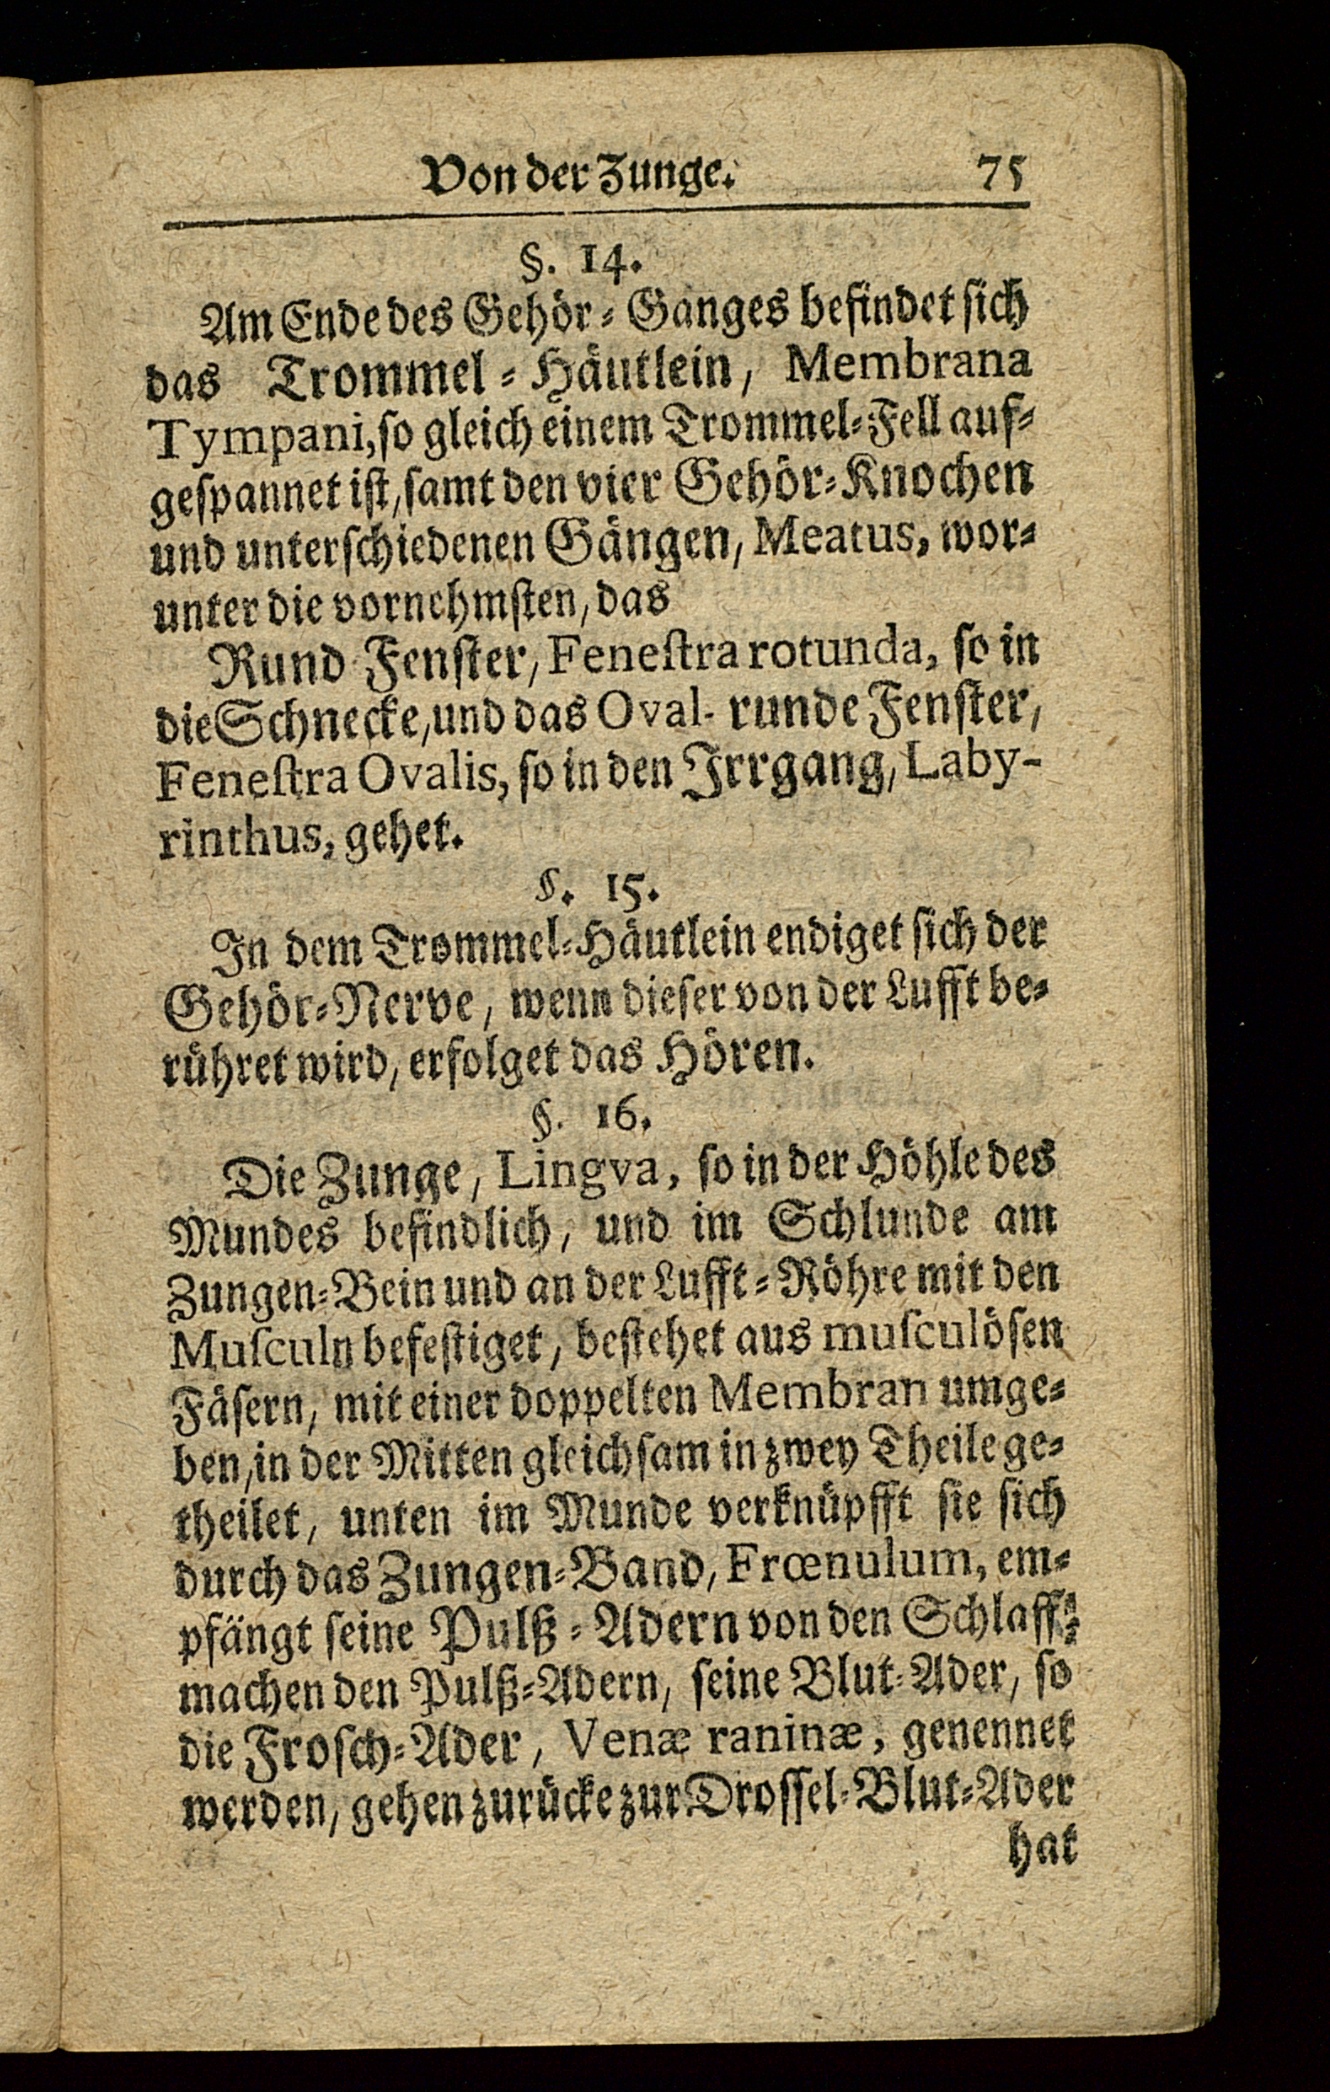 Von der Zunge. 75
§. 14.
Am Ende des Gehör-Ganges befindet sich
das Trommel-Häutlein, Membrana
Tympani, so gleich einem Trommel-Fell auf-
gespannet ist, samt den vier Gehör-Knochen
und unterschiedenen Gängen, Meatus, wor-
unter die vornehmsten, das
Rund Fenster, Fenestra rotunda, so in
die Schnecke, und das Oval-runde Fenster,
Fenestra Ovalis, so in den Irrgang, Laby-
rinthus, gehet.
§. 15.
In dem Trommel-Häutlein endiget sich der
Gehör-Nerve, wenn dieser von der Lufft be-
rühret wird, erfolget das Hören.
§. 16.
Die Zunge, Lingva, so in der Höhle des
Mundes befindlich, und im Schlunde am
Zungen-Bein und an der Lufft-Röhre mit den
Musculn befestiget, bestehet aus musculösen
Fäsern, mit einer doppelten Membran umge-
ben, in der Mitten gleichsam in zwey Theile ge-
theilet, unten im Munde verknüpfft sie sich
durch das Zungen-Band, Frœnulum, em-
pfängt seine Pulß-Adern von den Schlaff-
machen den Pulß-Adern, seine Blut-Ader, so
die Frosch-Ader, Venæ raninæ, genennet
werden, gehen zurücke zur Drossel-Blut-Ader
hat